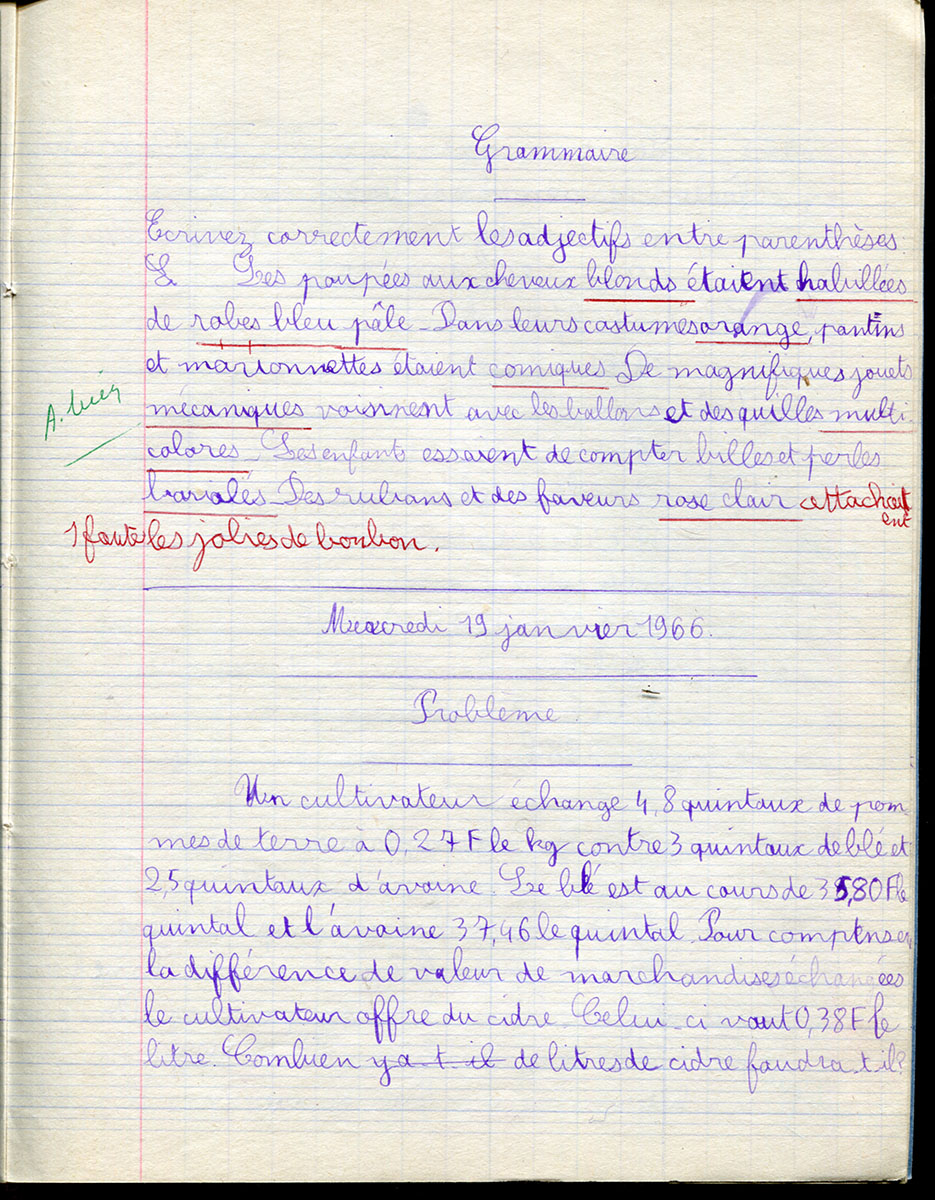 Grammaire
Ecrivez correctement les adjectifs entre parenthèses
Les poupées aux cheveux blonds étaient habillées
de robes bleu pâle. Dans leurs costumes orange, pantins
et marionnettes étaient comiques. De magnifiques jouets
A. bien
mécaniques voisinnent avec les ballons et des quilles multi
colores. Les enfants essaient de compter billes et perles
bariolés. Des rubans et des faveurs rose clair attachait
ent
1 faute les jolies de bonbon.
Mercredi 19 janvier 1966.
Problème
Un cultivateur échange 4,8 quintaux de pom
mes de terre à 0,27F le kg contre 3 quintaux de blé et
2,5 quintaux d'avoine. Le blé est au cours de 35,80F le
quintal et l'avoine 37,46 le quintal. Pour compenser
la différence de valeur de marchandises échangées
le cultivateur offre du cidre. Celui-ci vaut 0,38F le
litre. Combien y a-t-il de litres de cidre faudra-t-il?